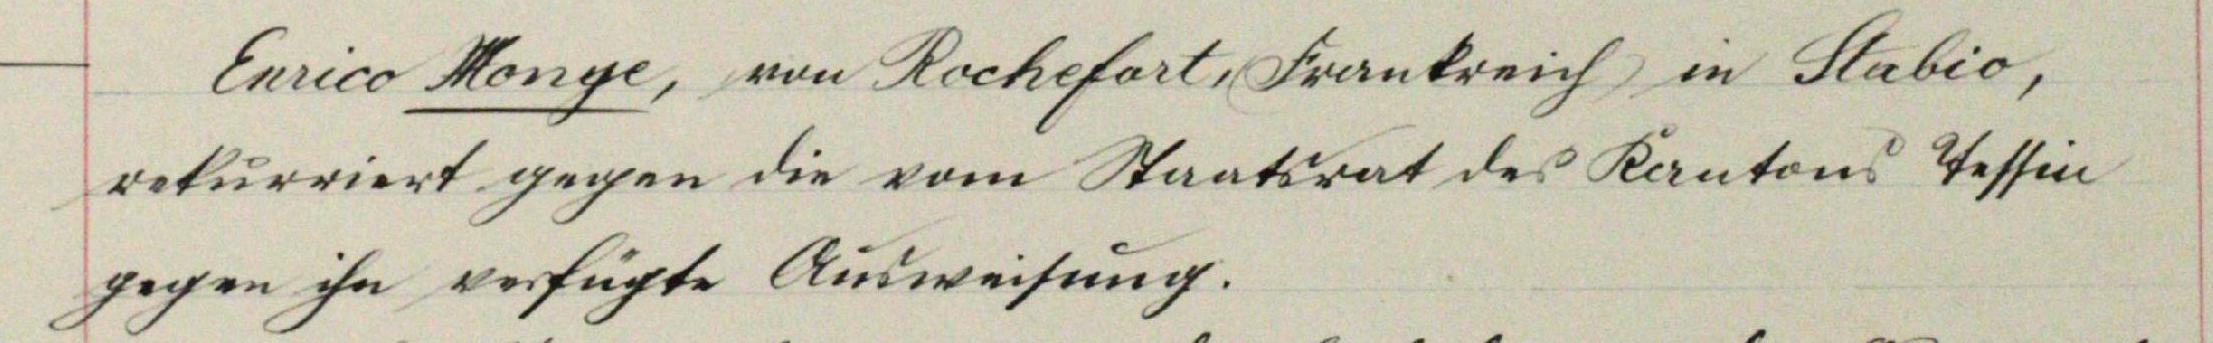 Enrico Monge, von Rochefort, (Frankreich) in Stabio,
rekurriert gegen die vom Staatsrat des Kantons Tessin
gegen ihn verfügte Ausweisung.